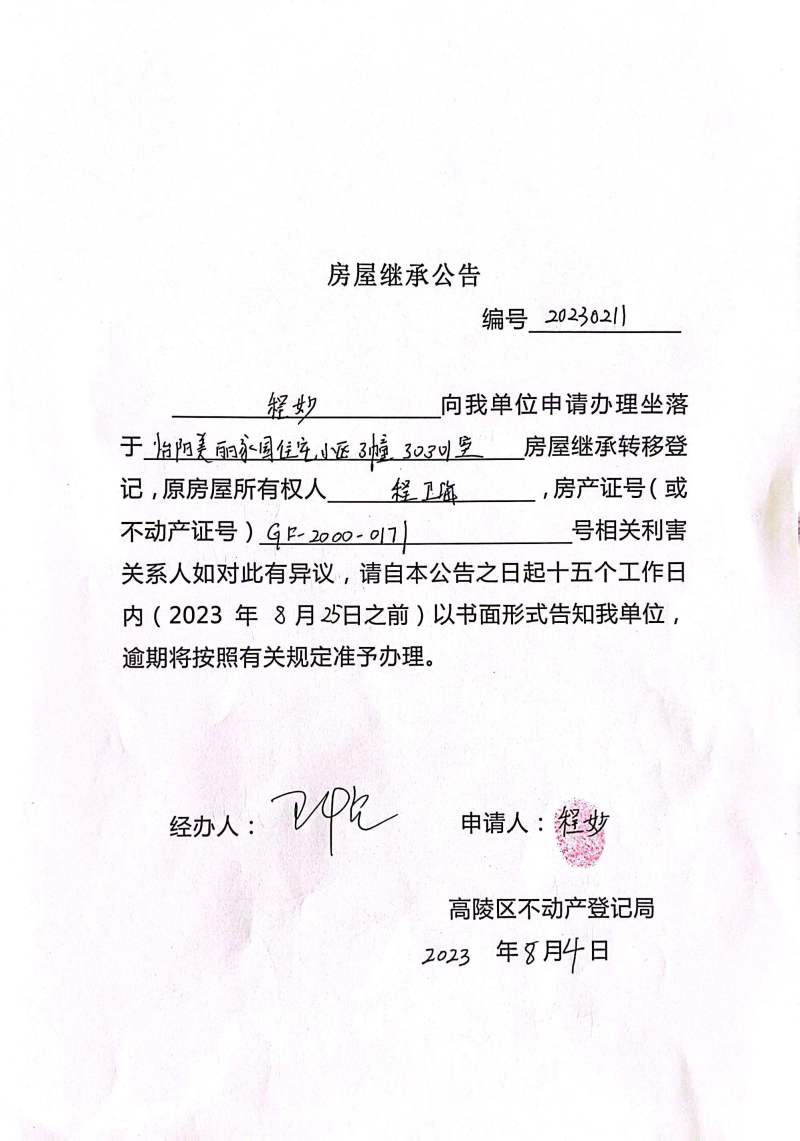 房屋继承公告
编号 20230211
程妙 向我单位申请办理坐落
于 怡阳美丽家园住宅小区3幢 30301室 房屋继承转移登
记，原房屋所有权人 程卫海 ，房产证号（或
不动产证号）GF-2000-0171 号相关利害
关系人如对此有异议，请自本公告之日起十五个工作日
内（2023 年 8 月25日之前）以书面形式告知我单位，
逾期将按照有关规定准予办理。
经办人： 申请人：程妙
高陵区不动产登记局
2023 年8月4日